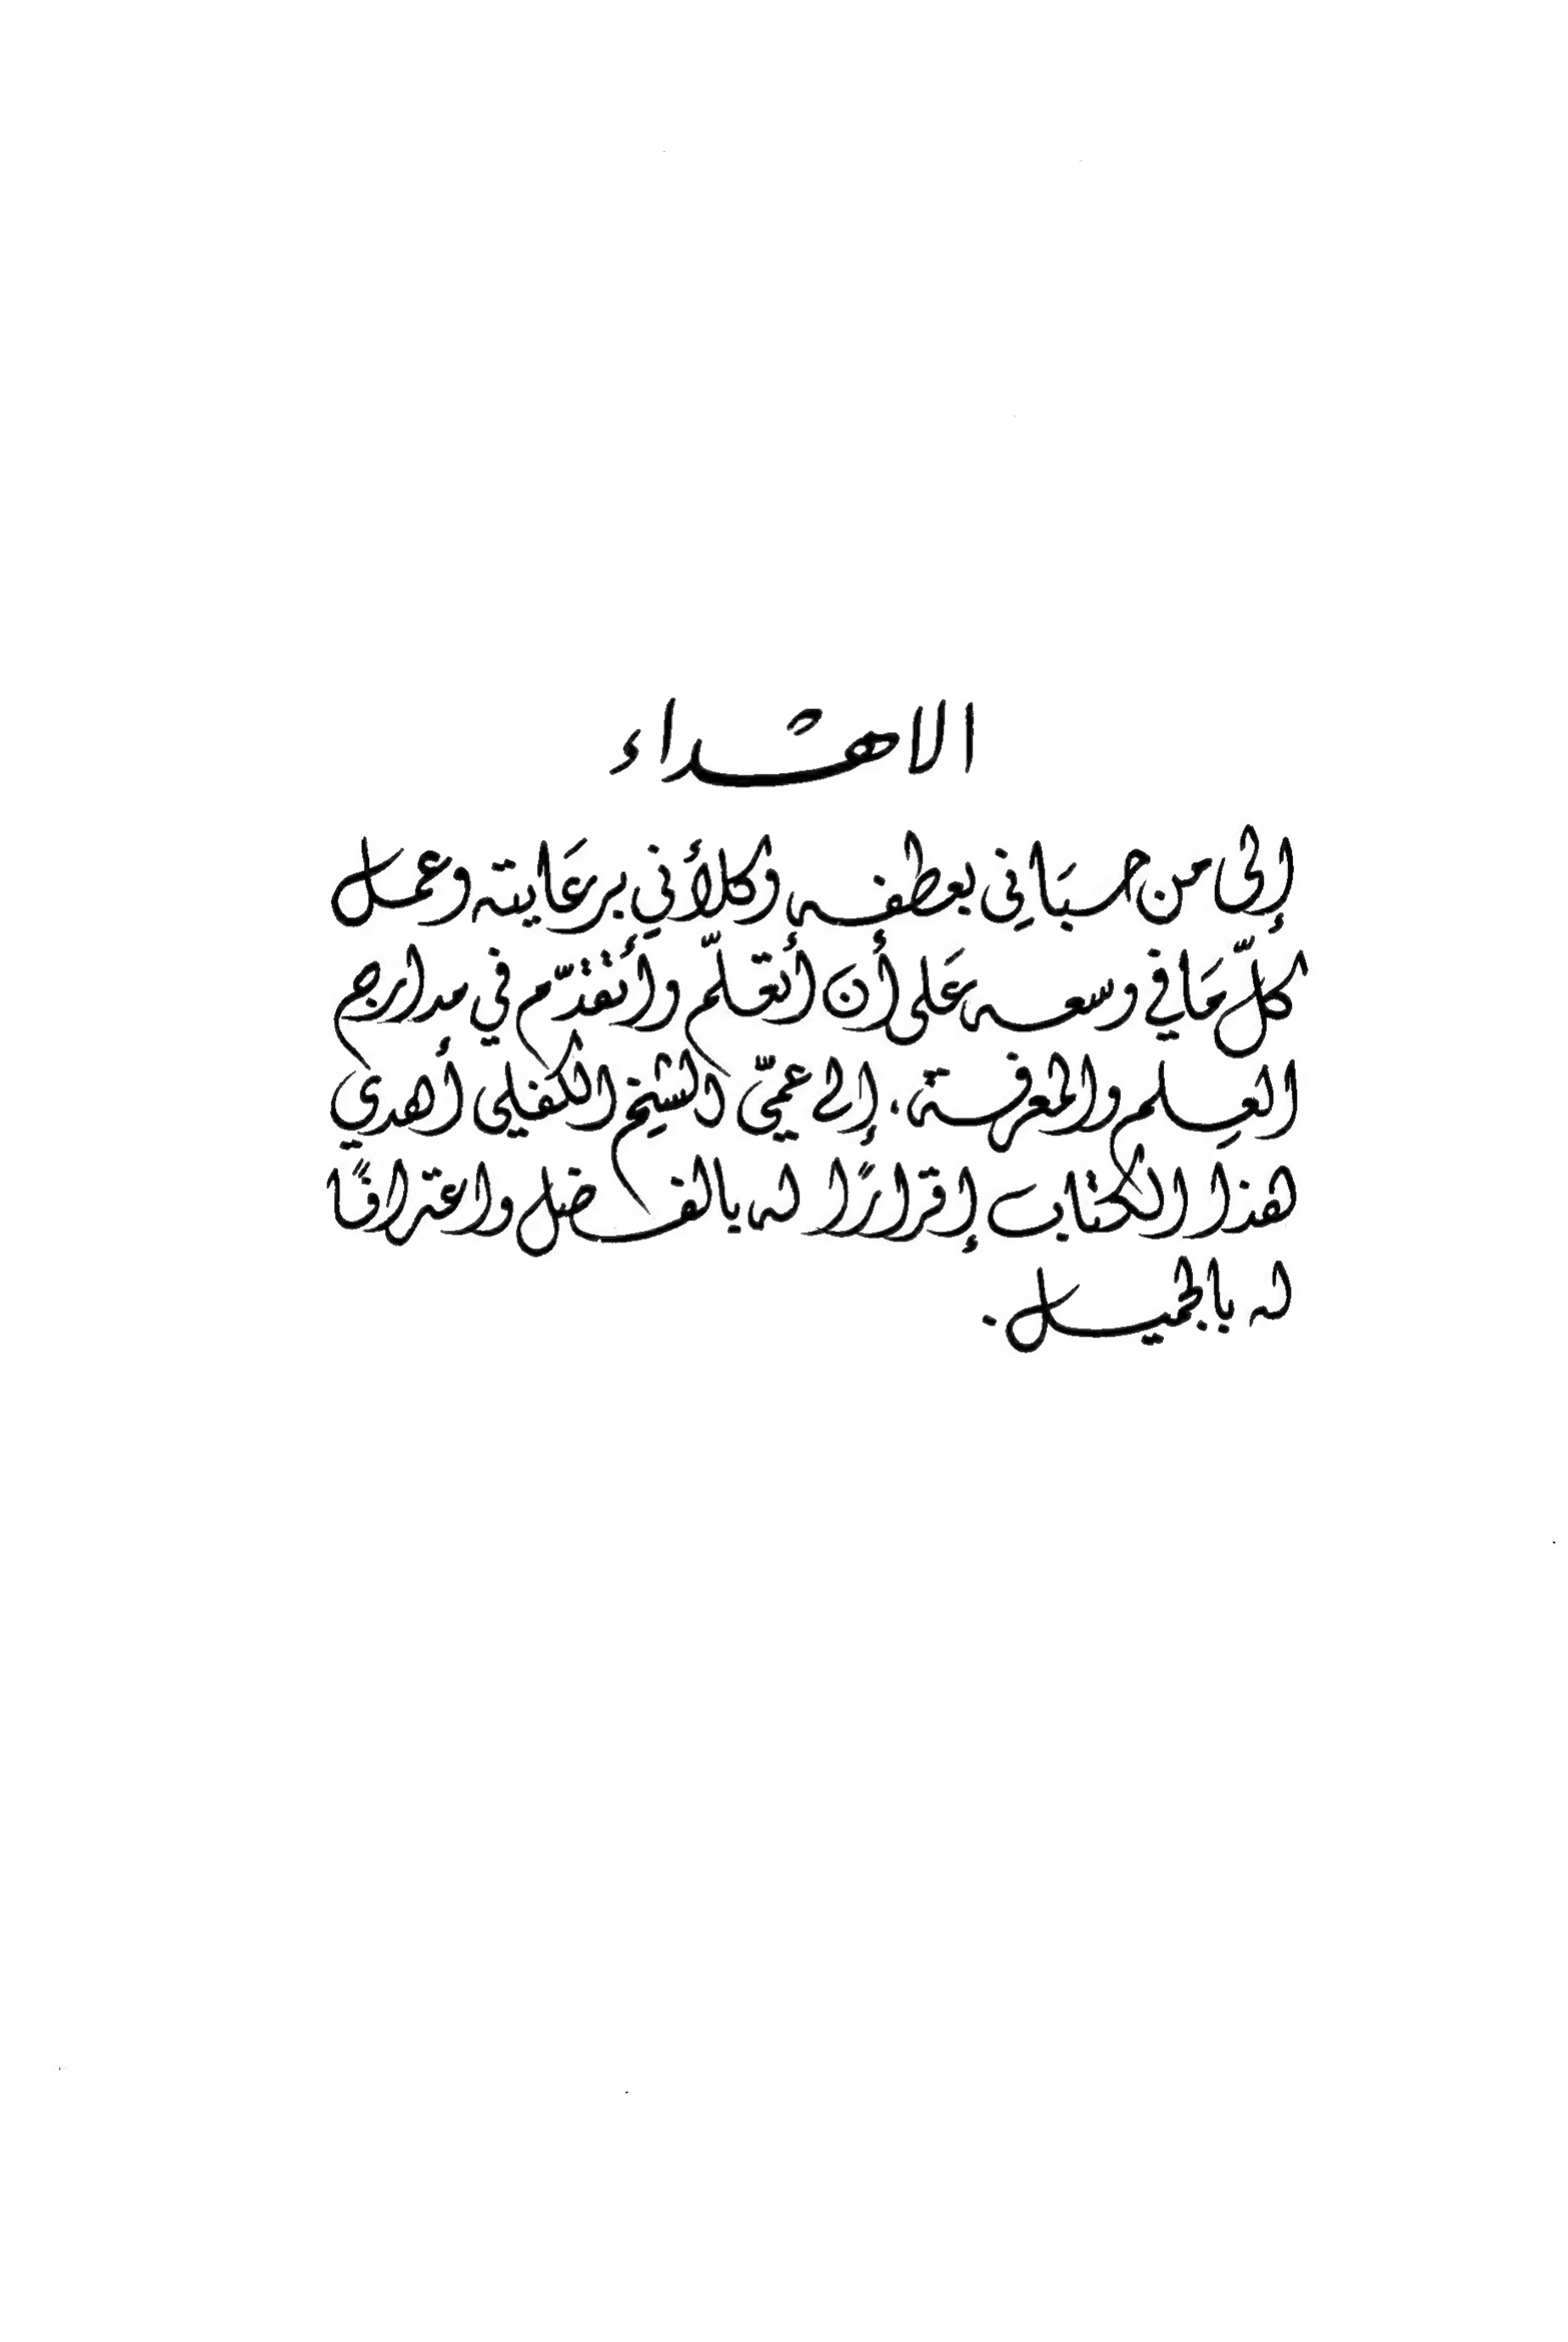 الاهداء
إلى من حبَاني بعطفه وكلأَني برعَايته وعمل
كلّ مَا في وسعه عَلى أن أتعلّم وأَتقدّم في مدارج
العِلم والمعرفة، إلى عمّي الشيخ الكفلي أهدي
هذا الكتاب إقرارًا له بالفضل واعترافًا
له بالجميل.